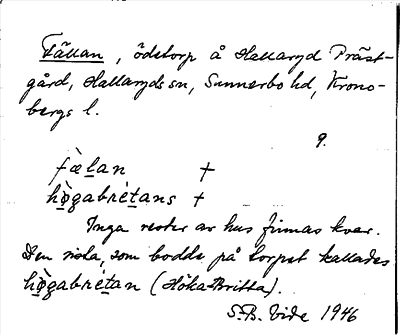 Fällan, ödetorp å Hallaryd Präst-
gård, Hallaryds sn, Sunnerbo hd, Krono-
bergs l.
9.
fæ̀lan †
hø̀gabrétans †
Inga rester av hus finnas kvar.
Den sista, som bodde på torpet kallades
hø̀gabrétan (Höka-Britta).
S.B. Vide 1946